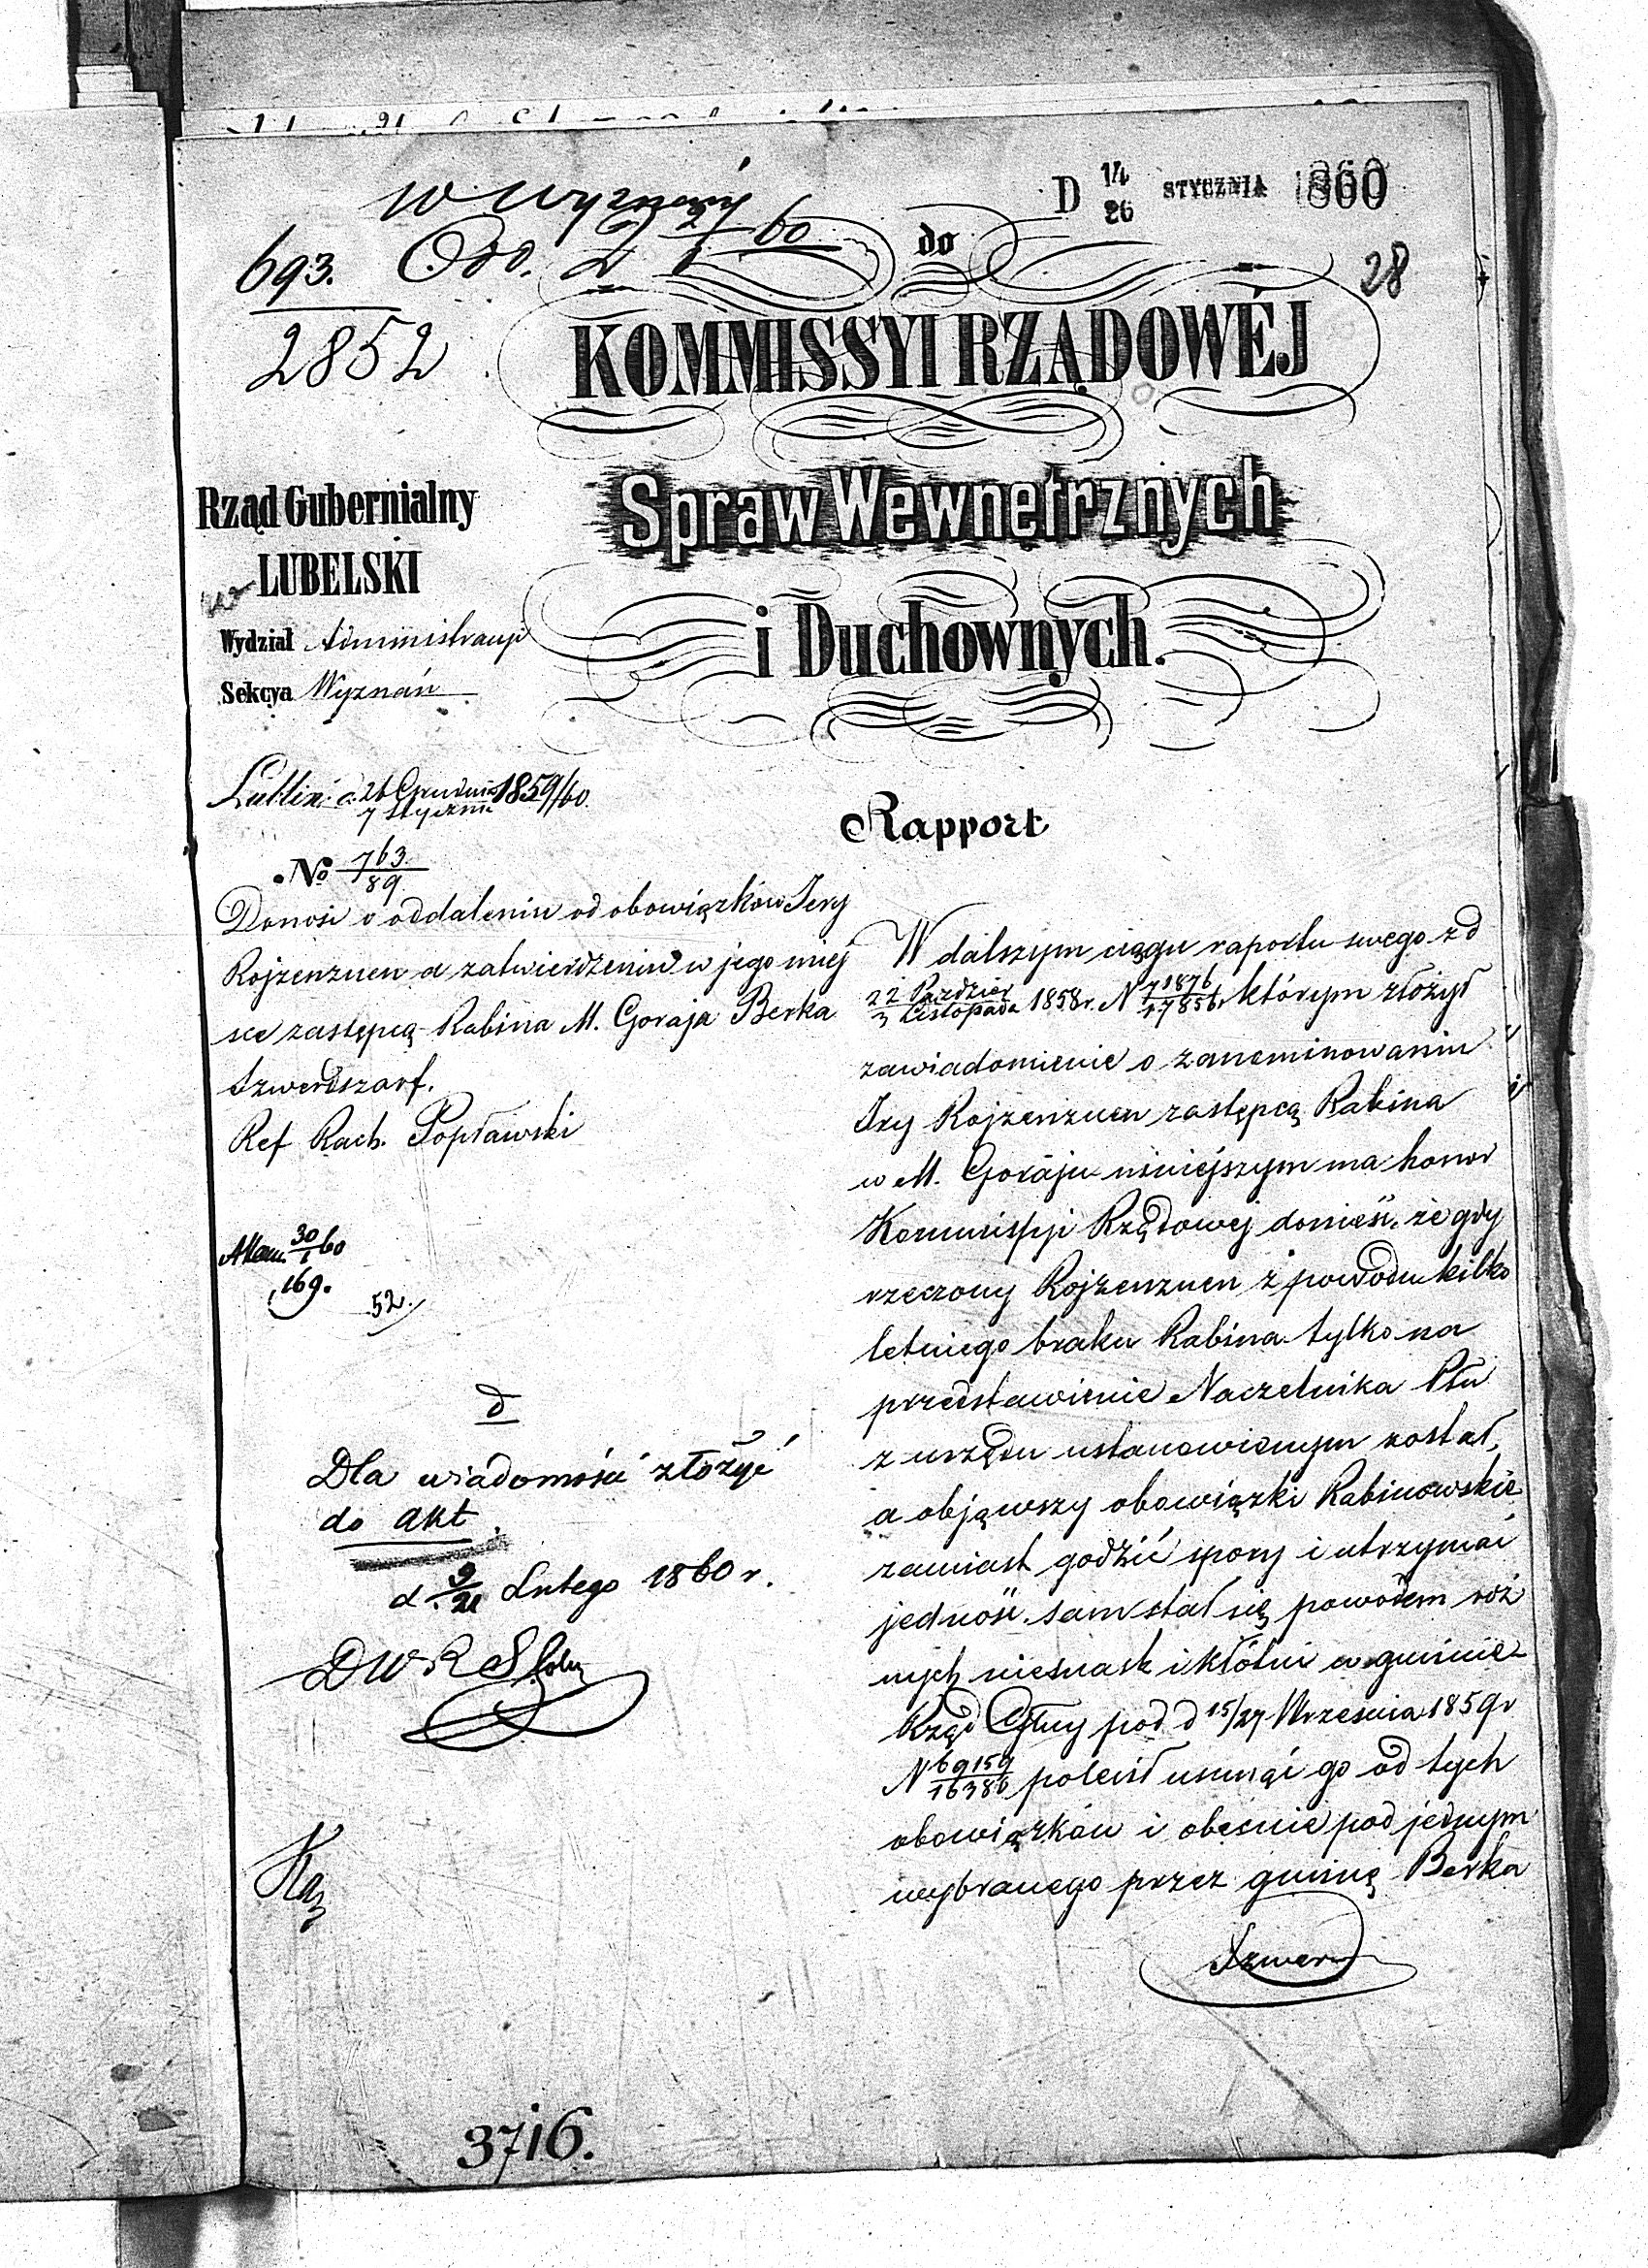 D 14/26 STYCZNIA 1860
w wyznań
693. Odd. 2 60
2852
28
do
KOMMISSYI RZĄDOWÉJ
Spraw Wewnetrznych
i Duchownych.
Rząd Gubernialny
LUBELSKI
Wydział Administracyi
Sekcya Wyznań
Lublin d. 26 Grudnia/7 Stycznia 1859/60.
No 763/89
Donosi o oddaleniu od obowiązków Icry
Rojzenzuen a zatwierdzeniu w jego miej
sce zastępcą Rabina M. Goraja Berka
Szwerdszarf.
Ref Rach. Popławski
30/1 60
169.
52.
d
Dla wiadomości złożyć
do akt.
d. 9/21 Lutego 1860 r.
DWR
Rapport
W dalszym ciągu raportu swego z d
22 Paździer/3 Listopada 1858 r. N 71876/17856 którym złożył
zawiadomienie o zanominowaniu
Icry Rojzenzuen zastępcą Rabina
w M. Goraju niniejszym ma honor
Kommissyi Rządowej donieść, że gdy
rzeczony Rojzenzuen z powodu kilko
letniego braku Rabina tylko na
przedstawienie Naczelnika Ptu
z urzędu ustanowionym został,
a objąwszy obowiązki Rabinowskie
zamiast godzić spory i utrzymać
jedność sam stał się powodem róż
nych niesnask i kłótni w gminie
Rząd Glny pod d 15/27 Września 1859 r
N 69159/16380 polecił usunąć go od tych
obowiązków i obecnie pod jednym
wybranego przez gminę Berka
Szwerd
3716.